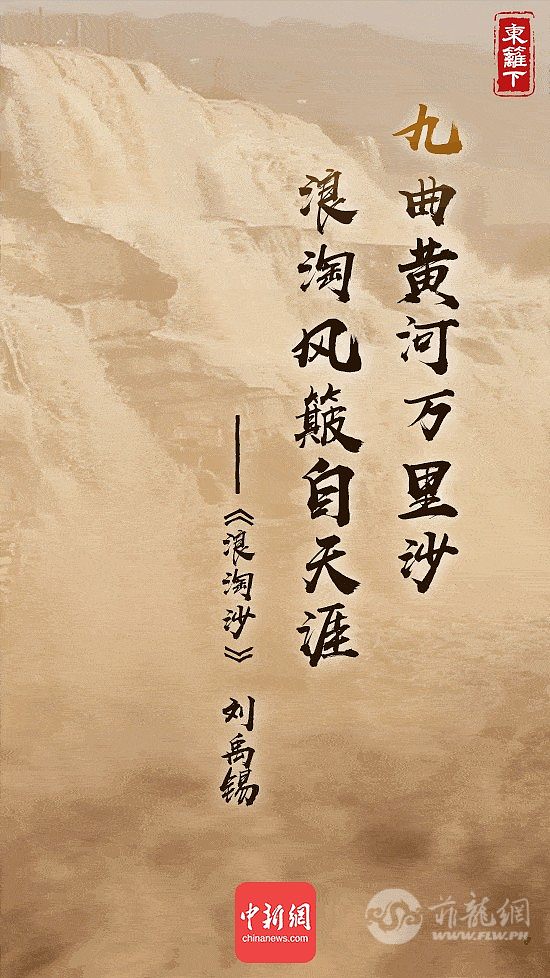 東籬下
九曲黄河万里沙
浪淘风簸自天涯
——《浪淘沙》 刘禹锡
中新網
chinanews.com
菲龍網
WWW.FLW.PH